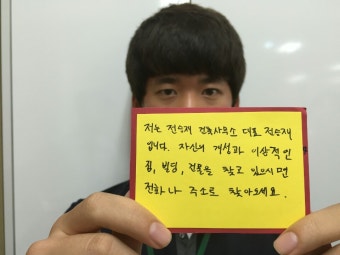 저는 전승재 건축사무소 대표 전승재
입니다. 자신의 개성과 이상적인
집, 빌딩, 건물을 찾고 있으시면
전화나 주소로 찾아오세요.